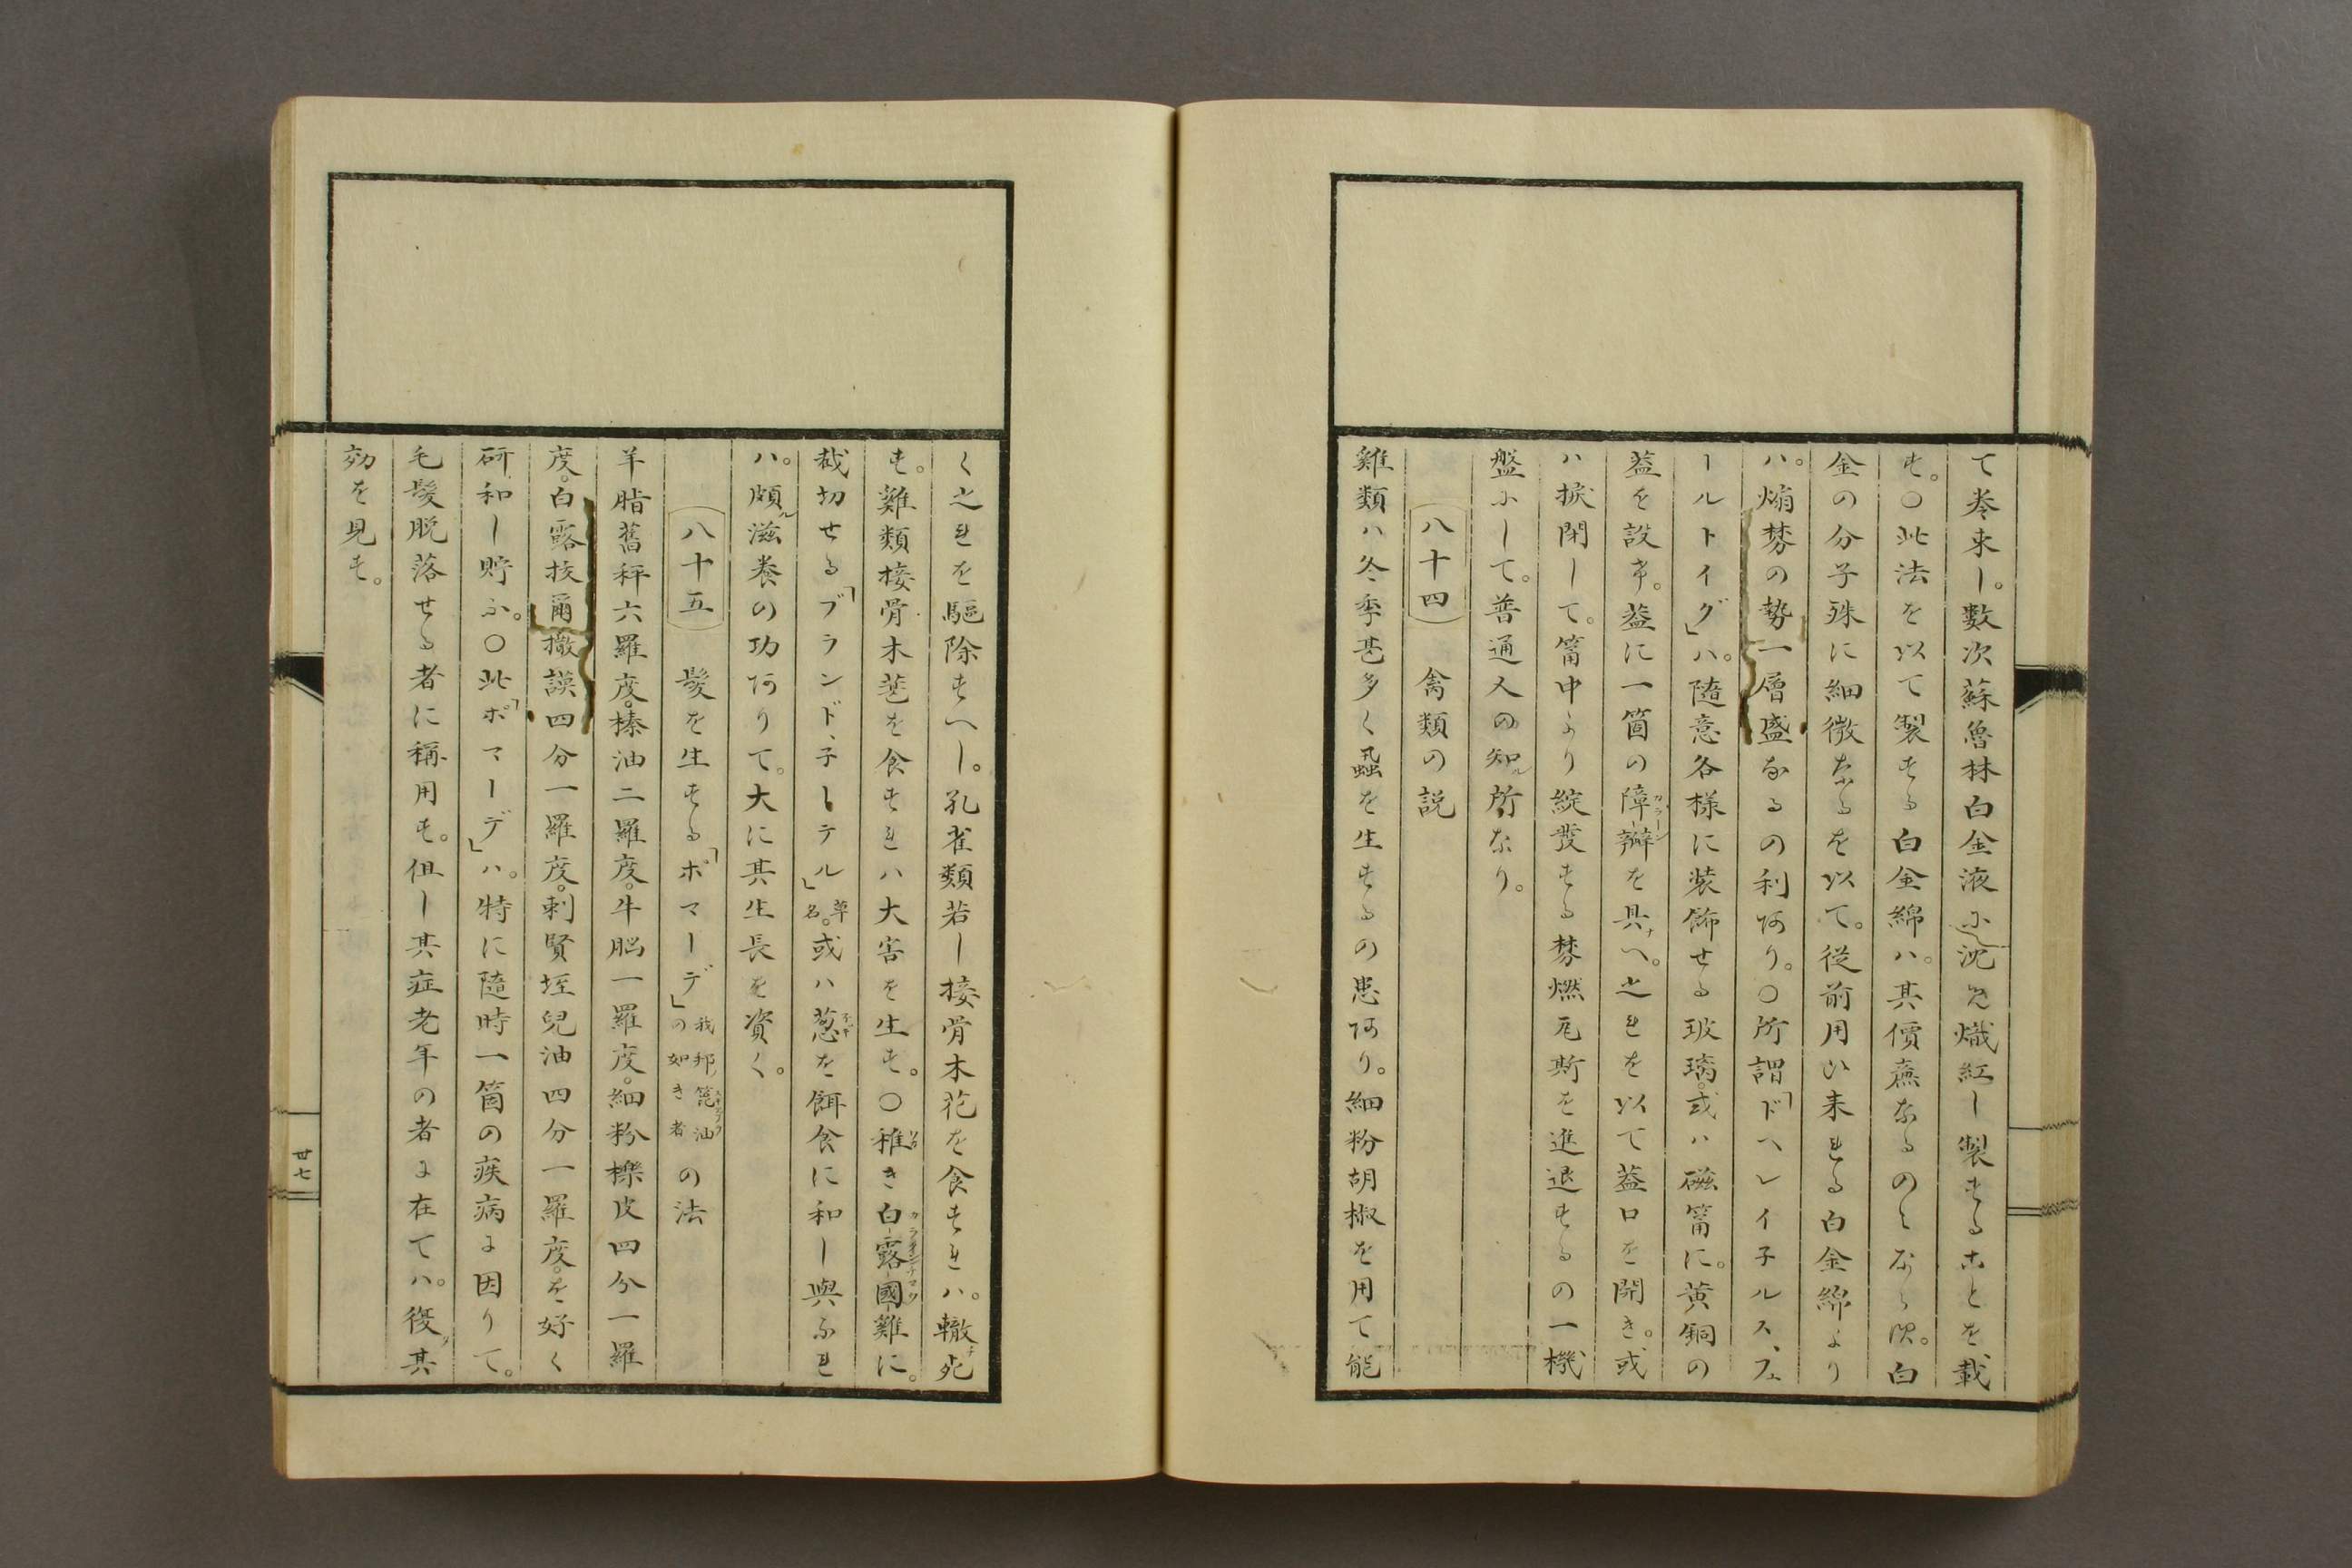 て巻来し。數次蘇魯林白金液に沈て熾紅し製することを載
す。〇此法を以て製する白金綿ハ。其價廉なるのミならず。白
金の分子殊に細微なるを以て。従前用ひ来れる白金綿より
ハ。煽焚の勢一層盛なるの利あり。〇所謂「ドヘレイ子ルス、フェ
ールトイグ」ハ。随意各様に装飾せる玻璃。或ハ磁筩に。黄銅の
蓋を設け。蓋に一箇の障辮を具へ。之れを以て蓋口を開き。或
ハ捩閉して。筩中より綻發する焚燃瓦斯を進退するの一機
盤にして。普通人の知ル所なり。
八十四　禽類の説
雞類ハ冬季甚多く蝨を生するの患あり。細粉胡椒を用て能
く之れを驅除すへし。孔雀類若し接骨木花を食すれハ。轍チ死
す。雞類接骨木葚を食すれハ大害を生す。〇稚き白露國雞に。
裁切せる「ブランド、子ーテル」草名。或ハ葱を餌食に和し與ふれ
ハ。頗ル滋養の功ありて。大に其生長を資く。
八十五　髪を生する「ポマーデ」我邦ノ篦油の如き者の法
羊脂舊秤六羅度。榛油二羅度。牛脳一羅度。細粉櫟皮四分一羅
度。白露抜爾撒謨四分一羅度。刺賢垤兒油四分一羅度。を好く
研和し貯ふ。〇此「ポマーデ」ハ。特に随時一箇の疾病に因りて。
毛髪脱落せる者に稱用す。但し其症老年の者に在てハ。復タ其
効を見す。
卅七